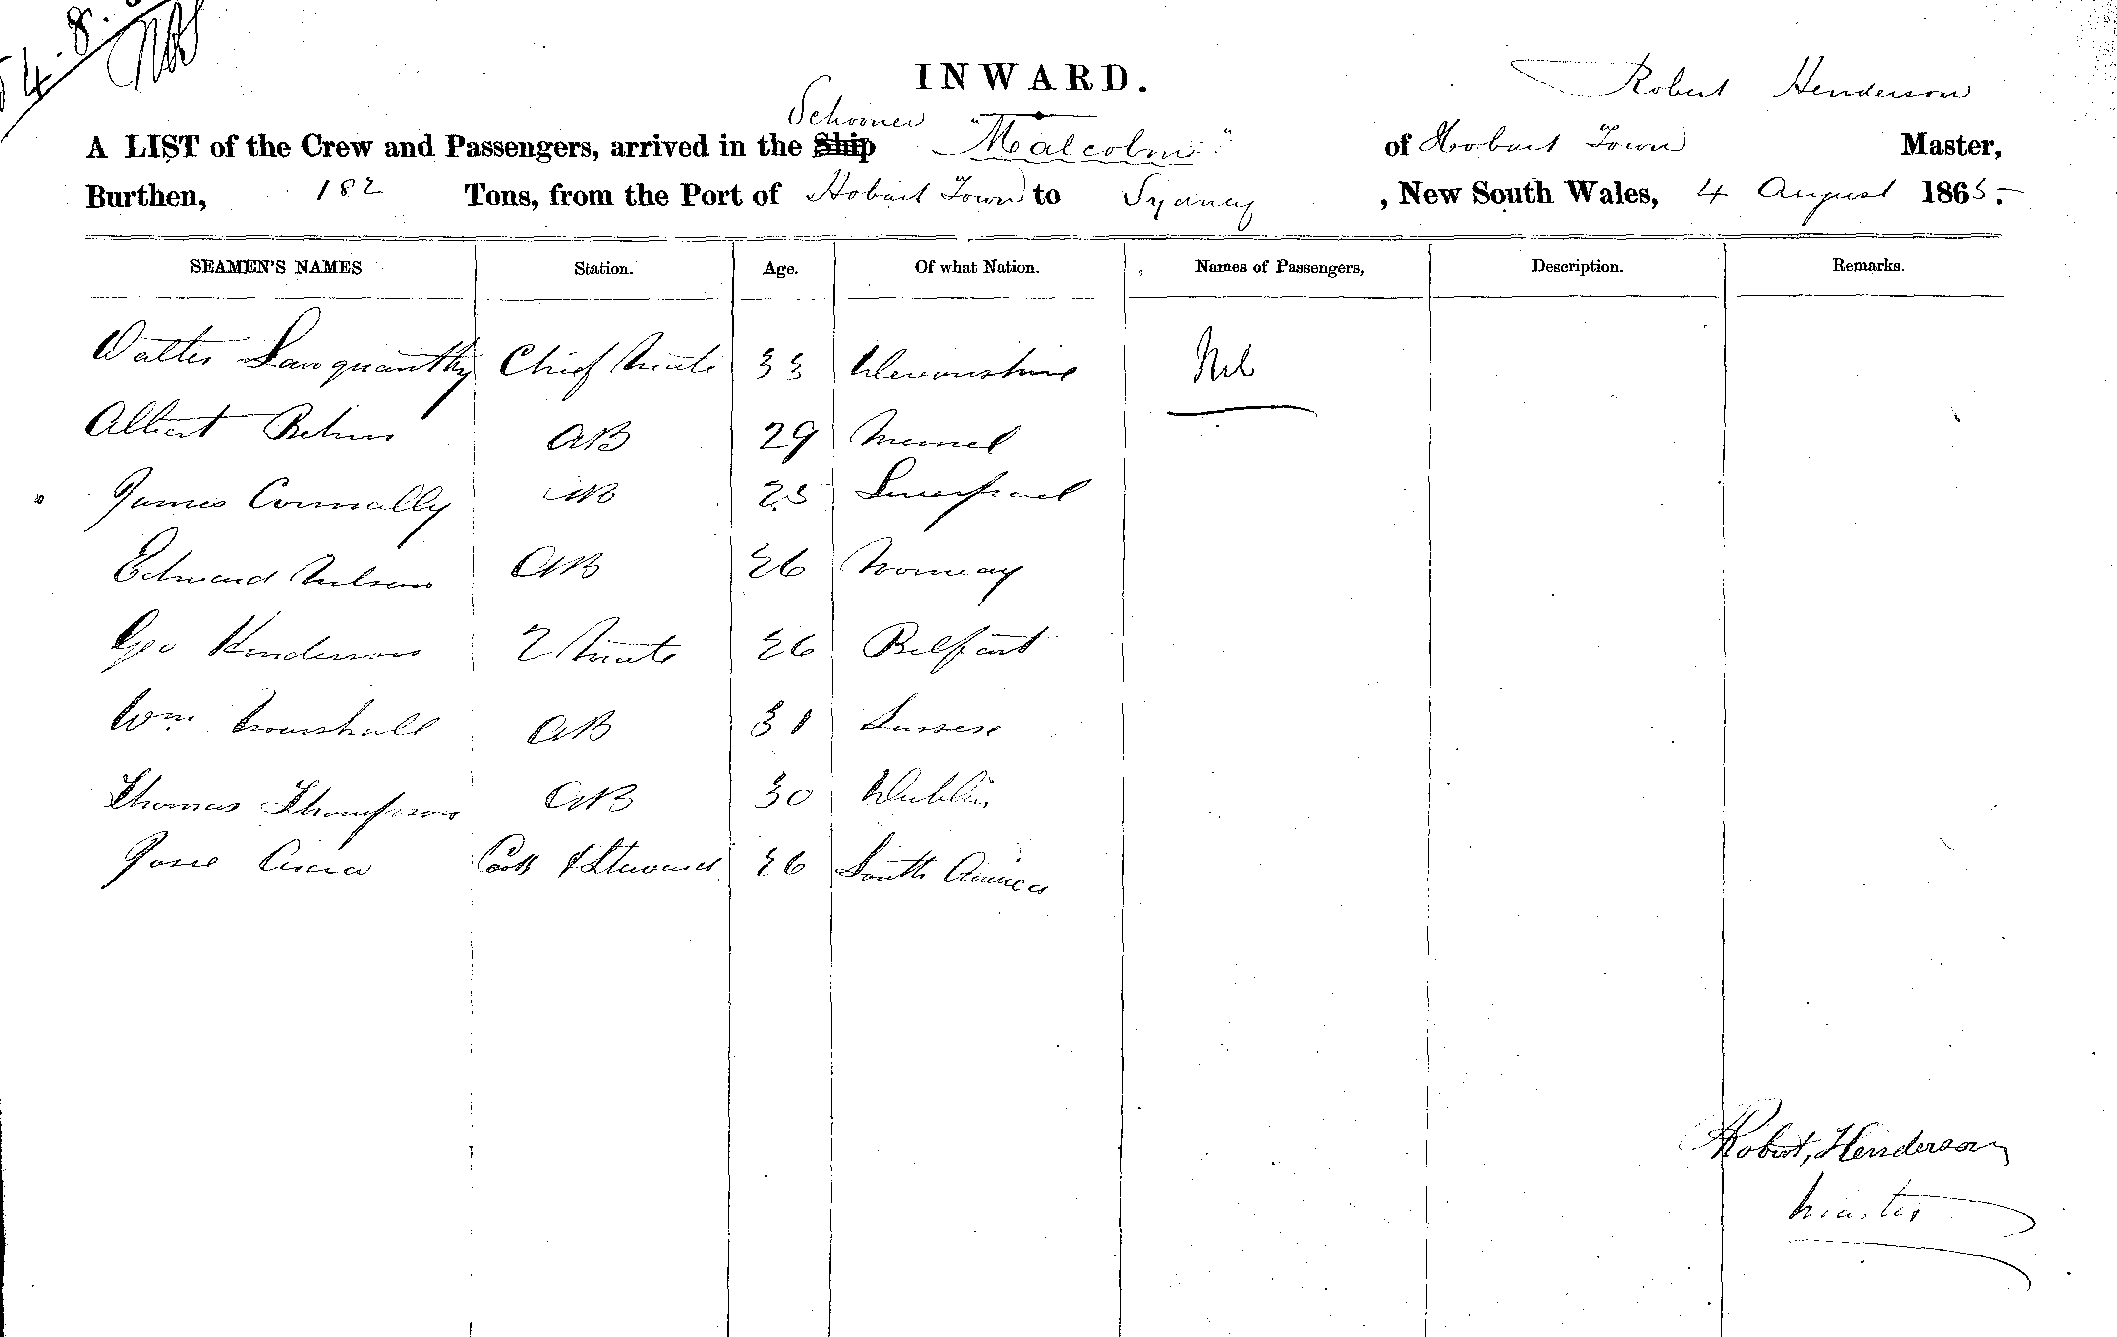 4.8.
INWARD.
Robert Henderson
Schooner
A LIST of the Crew and Passengers, arrived in the Ship "Malcolm" of Hobart Town Master,
Burthen, 182 Tons, from the Port of Hobart Town to Sydney, New South Wales, 4 August 1865.
SEAMEN'S NAMES Station. Age. Of what Nation. Names of Passengers, Description. Remarks.
Walter Chief Mate 33 Devonshire Nil
Albert AB 29 Memel
James Connally AB 25 Liverpool
Edward Nelson AB 26 Norway
Geo Henderson 2 Mate 26 Belfast
Wm Marshall AB 31 Sussex
Thomas Thompson AB 30 Dublin
Jose Cook & Steward 26 South America
Robert Henderson
Master